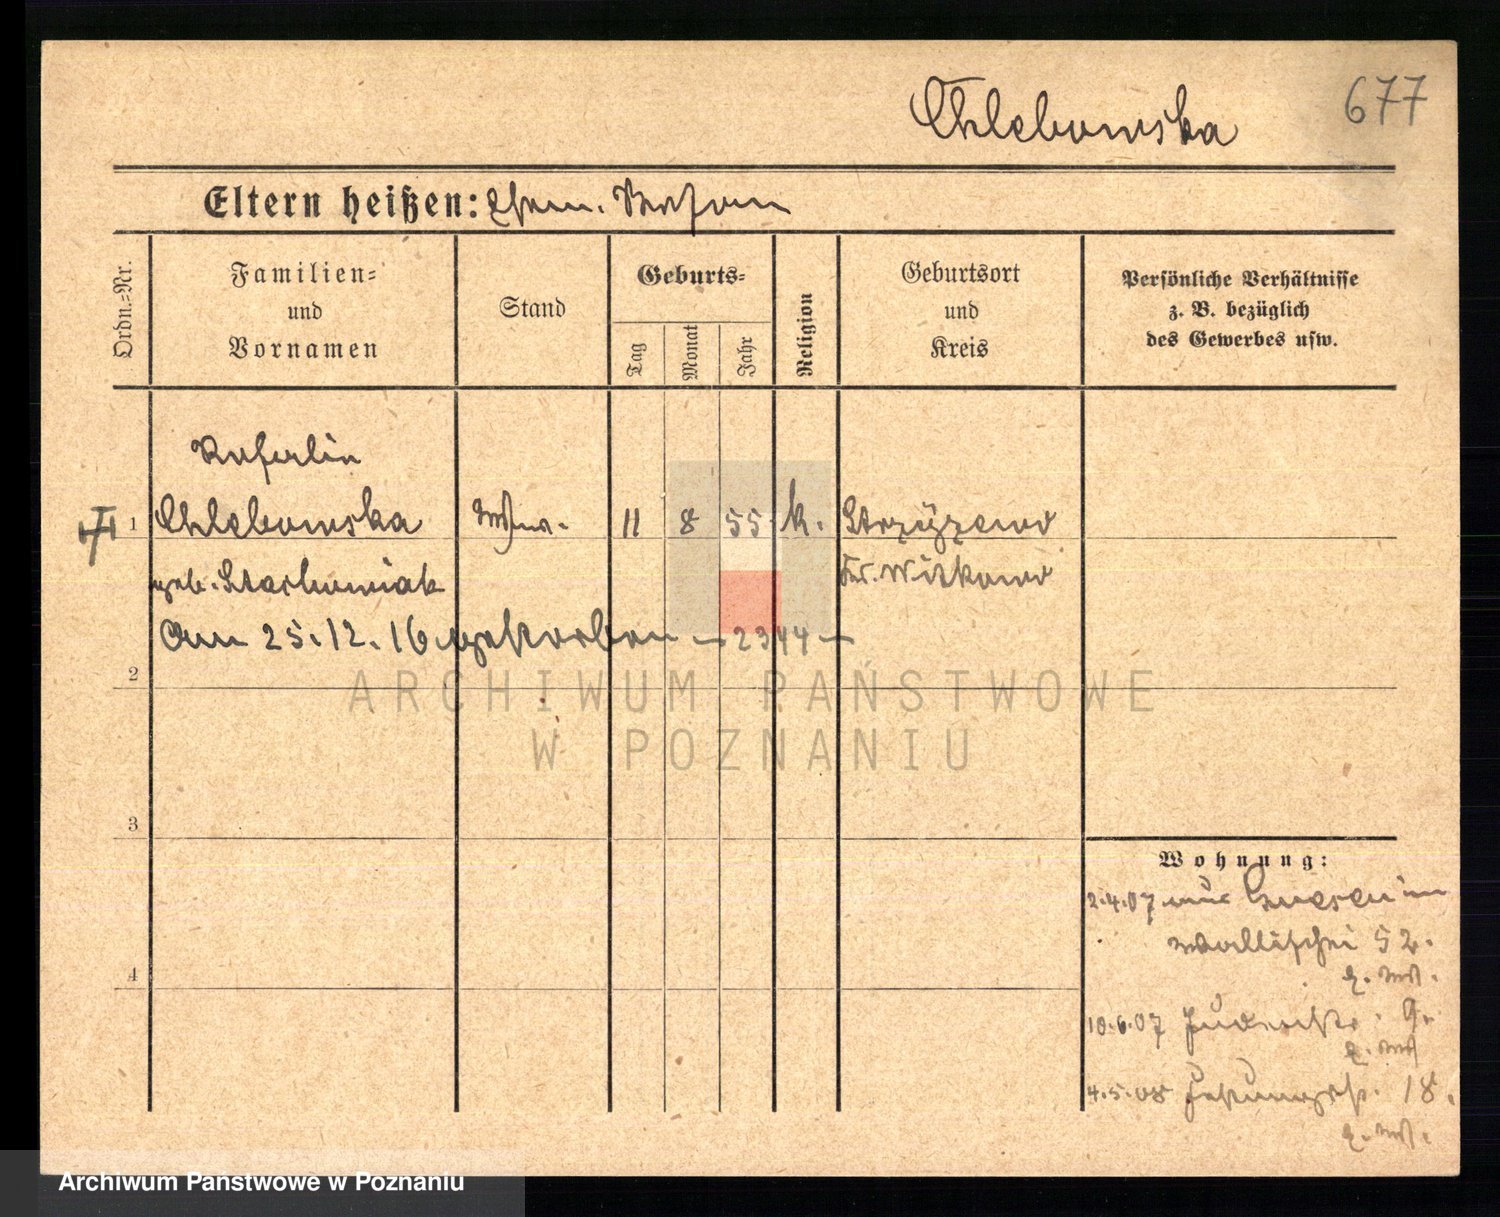 Chlebowska
677
Eltern heißen:
Ordn.-Nr.
Familien-
und
Vornamen
Stand
Geburts-
Tag
Monat
Jahr
Religion
Geburtsort
und
Kreis
Persönliche Verhältnisse
z. B. bezüglich
des Gewerbes usw.
1 Chlebowska 11 8 55 k. Strzyżewo
geb. Stachowiak Kr. Witkowo
Am 25.12.16 gestorben — 2344 —
2
ARCHIWUM PAŃSTWOWE
W POZNANIU
3
Wohnung:
2.4.07 aus Gnesen
Wallischei 52.
4
10.6.07 Judenstr. 9.
4.5.08 18.
Archiwum Państwowe w Poznaniu